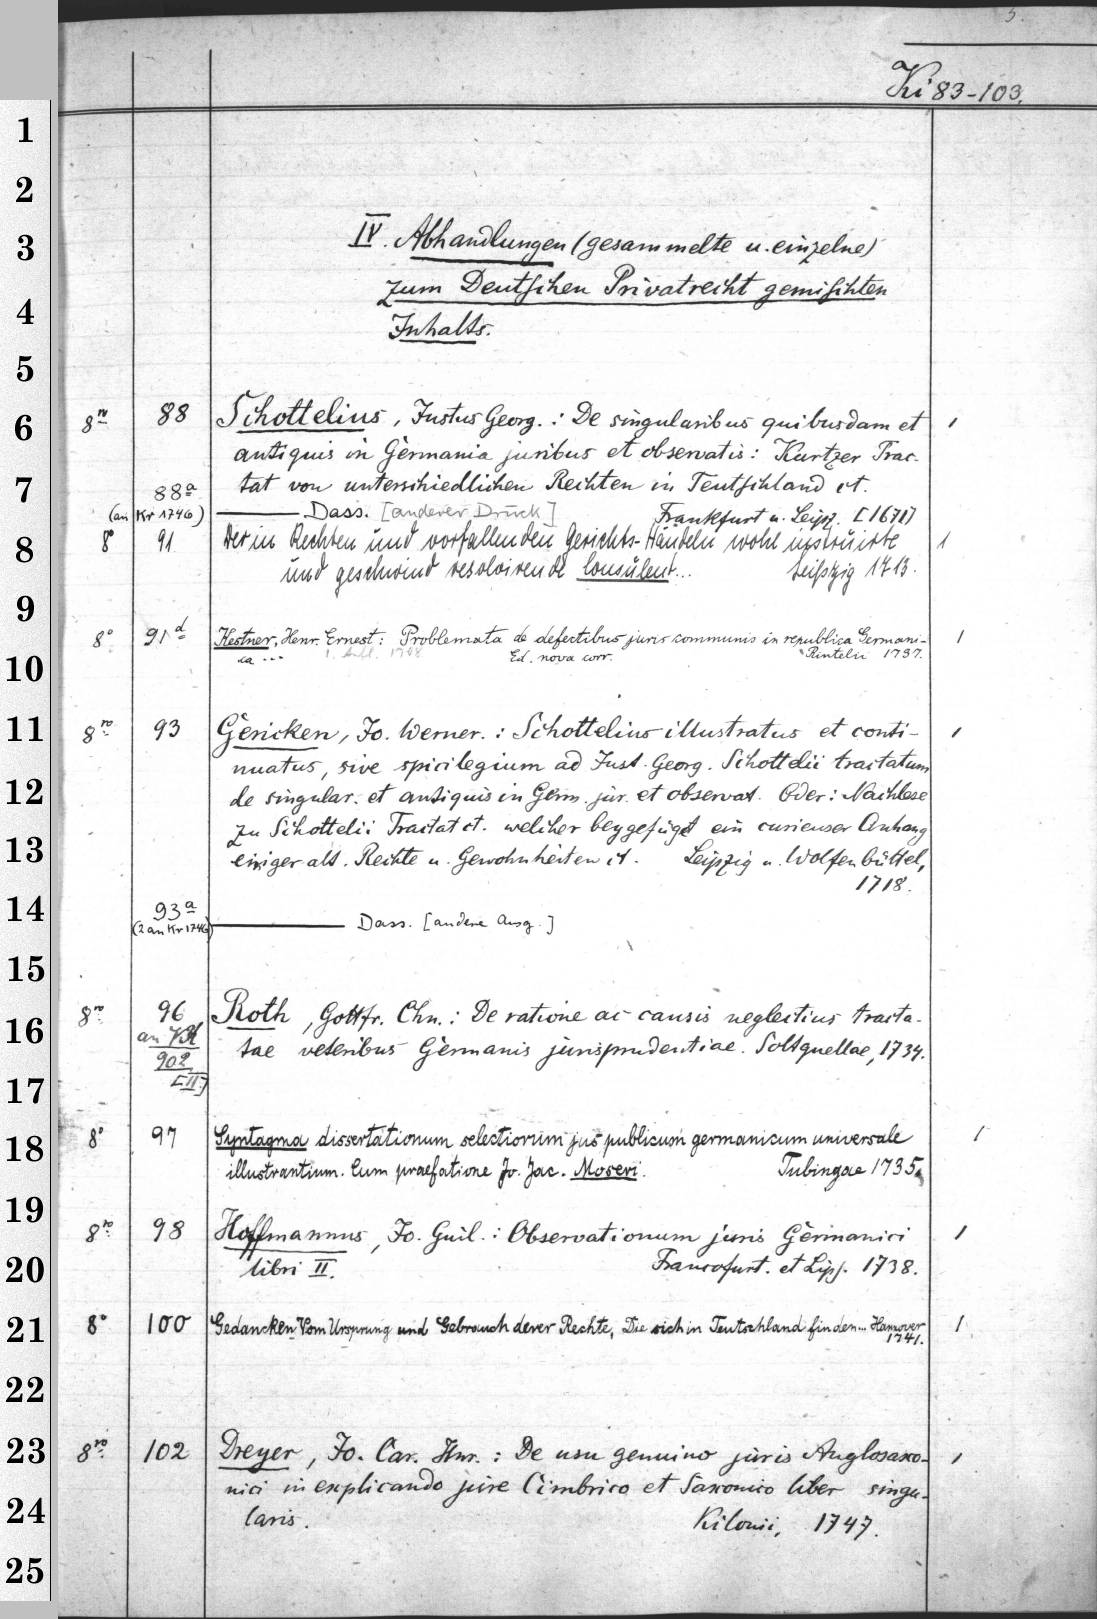 5.
Ki 83-103.
1
2
3
4
5
6
7
8
9
10
11
12
13
14
15
16
17
18
19
20
21
22
23
24
25
IV. Abhandlungen (gesammelte u. einzelne)
zum Deutschen Privatrecht gemischten
Inhalts.
8vo 88 Schottelius, Justus Georg.: De singularibus quibusdam et 1
antiquis in Germania juribus et observatis: Kurtzer Trac-
tat von unterschiedlichen Rechten in Teutschland et.
Frankfurt u. Leipz. [1671]
88a (an Kr 1746) Dass. [anderer Druck]
8° 91 Der in Rechten und vorfallenden Gerichts-Händeln wohl instruirte 1
und geschwind resolvirende Consulent... Leipzig 1713.
8° 91d Kestner, Henr. Ernest: Problemata de defectibus juris communis in republica Germani- 1
ca ... Ed. nova corr. Rintelii 1737.
8vo 93 Gericken, Jo. Werner.: Schottelius illustratus et conti- 1
nuatus, sive spicilegium ad Just. Georg. Schottelii tractatum
de singular. et antiquis in Germ. jur. et observat. Oder: Nachlese
zu Schottelii Tractat et. welcher beygefüget ein curieuser Anhang
einiger alt. Rechte u. Gewohnheiten et. Leipzig u. Wolfenbüttel,
1718.
93a (2 an Kr 1746) Dass. [andere Ausg.]
8vo 96 Roth, Gottfr. Chn.: De ratione ac causis neglectius tracta-
an
902
[II]
tae veteribus Germanis jurisprudentiae. Soltquellae, 1734.
8° 97 Syntagma dissertationum selectiorum jus publicum germanicum universale 1
illustrantium. Cum praefatione Jo. Jac. Moseri. Tubingae 1735.
8vo 98 Hoffmannus, Jo. Guil.: Observationum juris Germanici 1
libri II. Francofurt. et Lips. 1738.
8° 100 Gedancken Vom Ursprung und Gebrauch derer Rechte, Die sich in Teutschland finden... Hannover 1
1741.
8vo 102 Dreyer, Jo. Car. Hnr.: De usu genuino juris Anglosaxo- 1
nici in explicando jure Cimbrico et Saxonico liber singu-
laris. Kilonii, 1747.